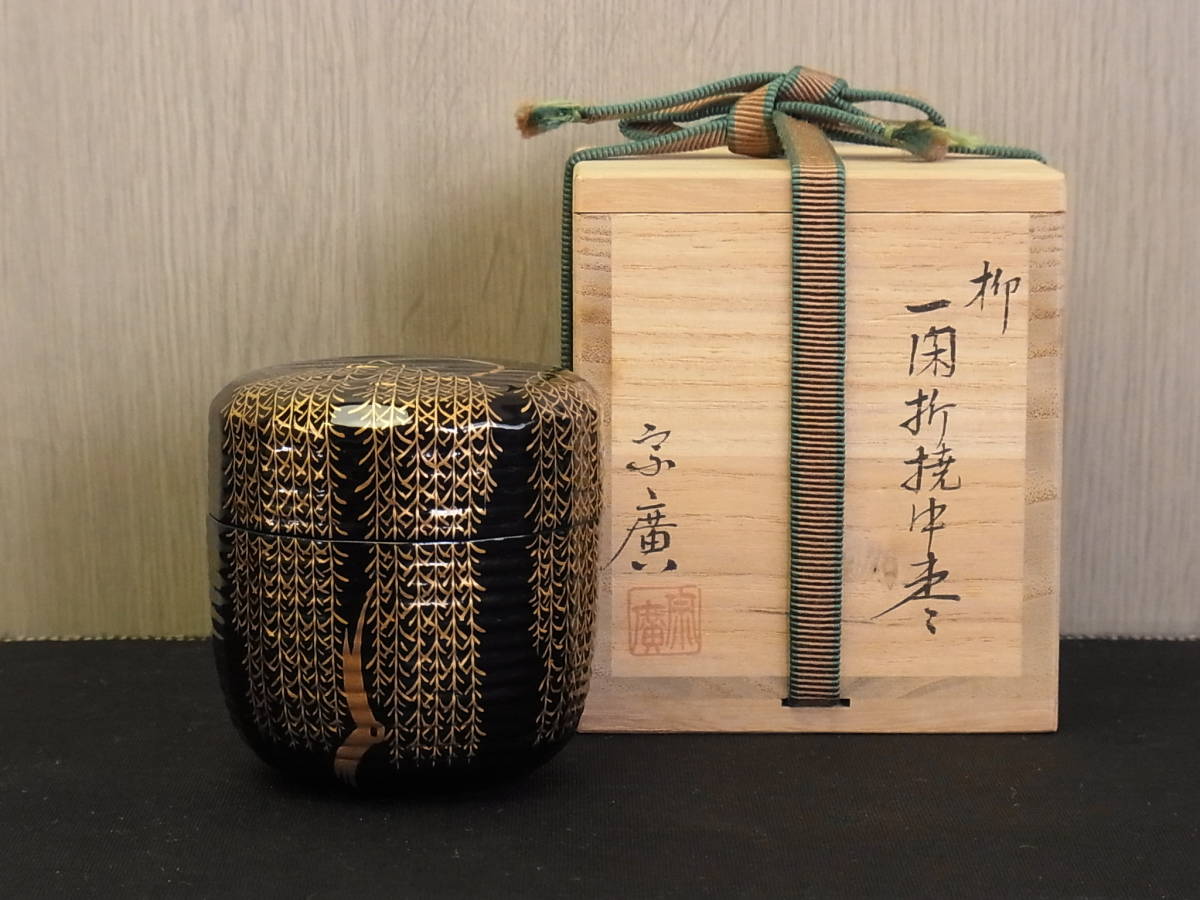 柳
一閑折撓中棗
宗廣
宗廣